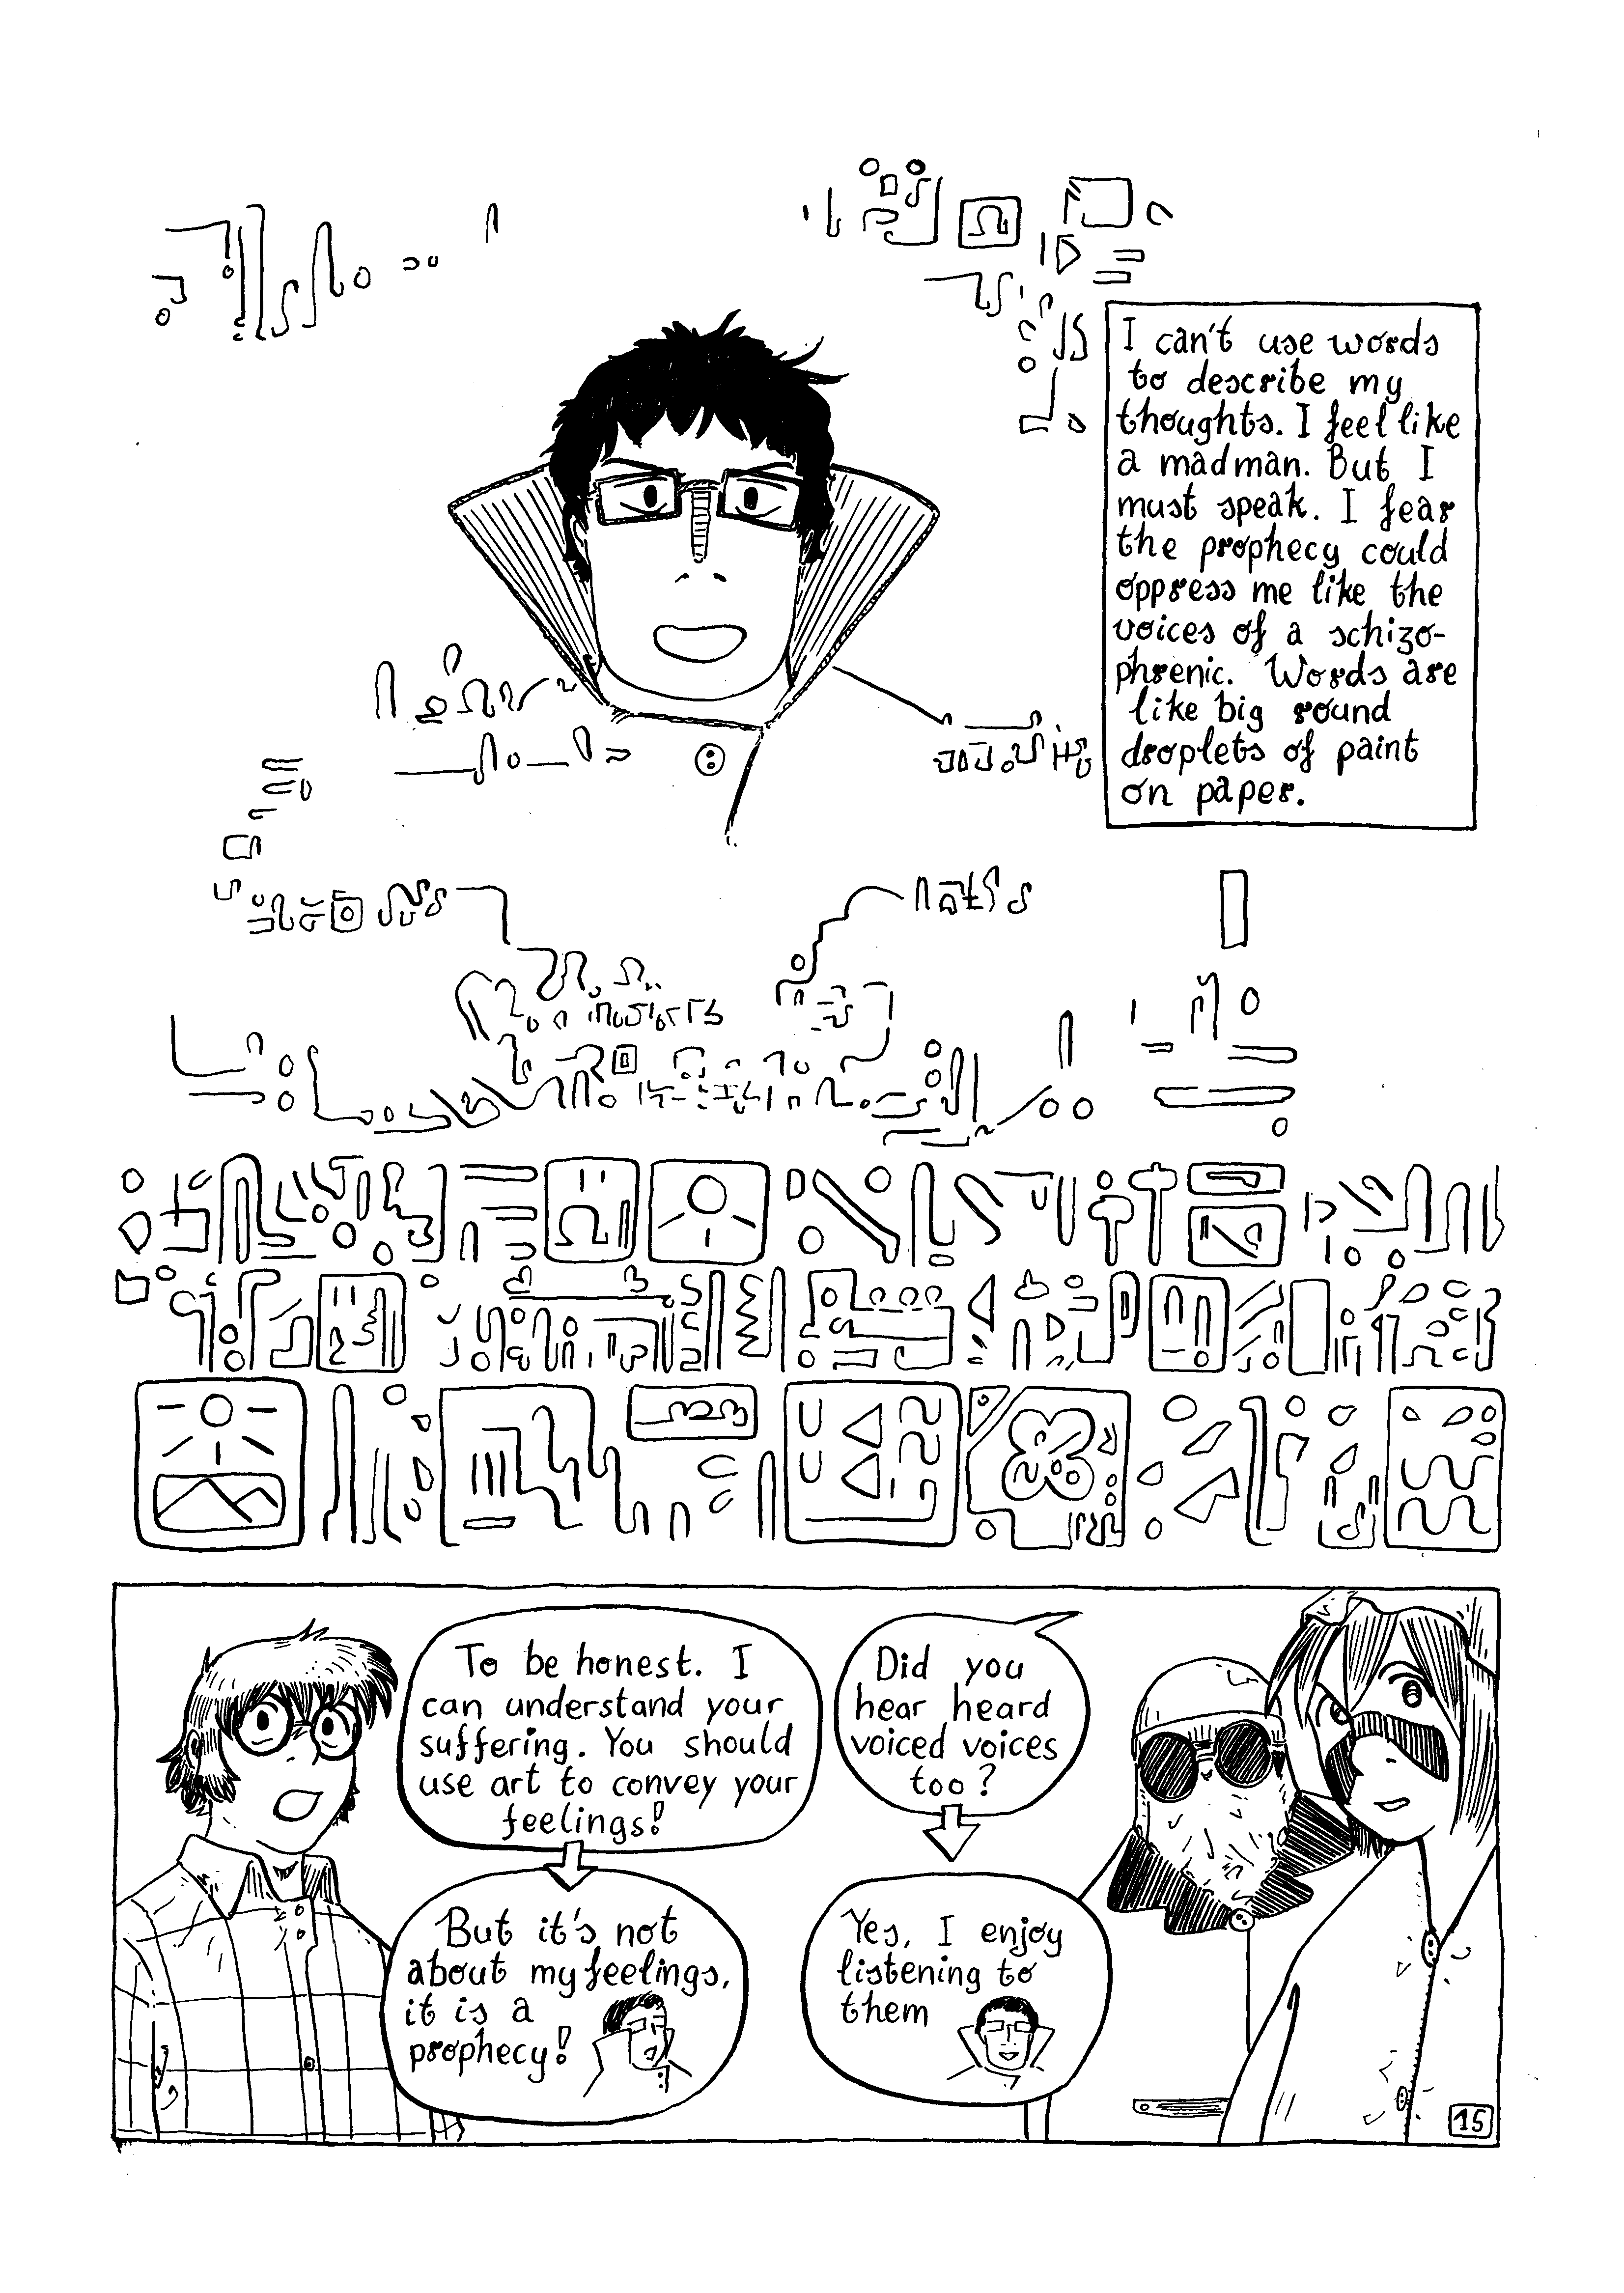 I can't use words
to describe my
thoughts. I feel like
a madman. But I
must speak. I fear
the prophecy could
oppress me like the
voices of a schizo-
phrenic. Words are
like big round
droplets of paint
on paper.
To be honest. I
can understand your
suffering. You should
use art to convey your
feelings!
But it's not
about my feelings,
it is a
prophecy!
Did you
hear heard
voiced voices
too?
Yes, I enjoy
listening to
them
15